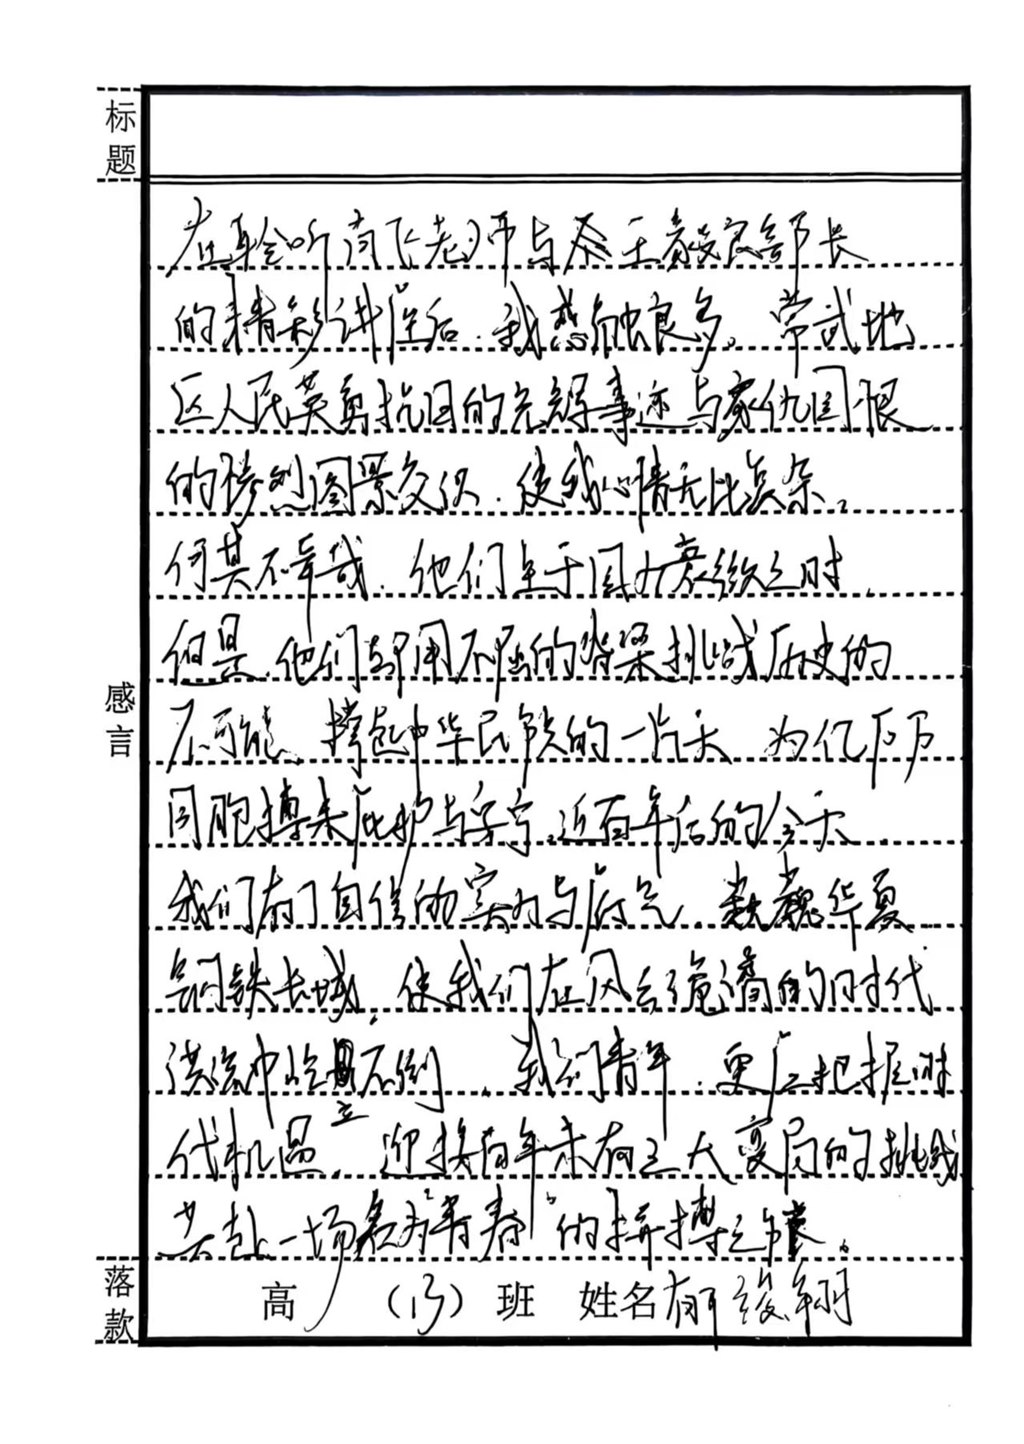 标题
在聆听尚飞老师与王毅良部长
的精彩讲座后,我感触良多。常武地
区人民英勇抗日的光辉事迹与家仇国恨
的惨烈图景交织,使我心情无比复杂。
何其不幸哉,他们生于国力衰微之时,
但是,他们却用不屈的脊梁挑战历史的
不可能,撑起中华民族的一片天,为亿万万
同胞搏来庇护与安宁。近百年后的今天,
我们有了自信的实力与底气,巍巍华夏
钢铁长城,使我们在风云弥漫的时代
洪流中屹立不倒。我们青年,更应把握时
代机遇,迎接百年未有之大变局的挑战
共赴一场名为“青春”的拼搏之旅。
感言
落款
高(13)班 姓名